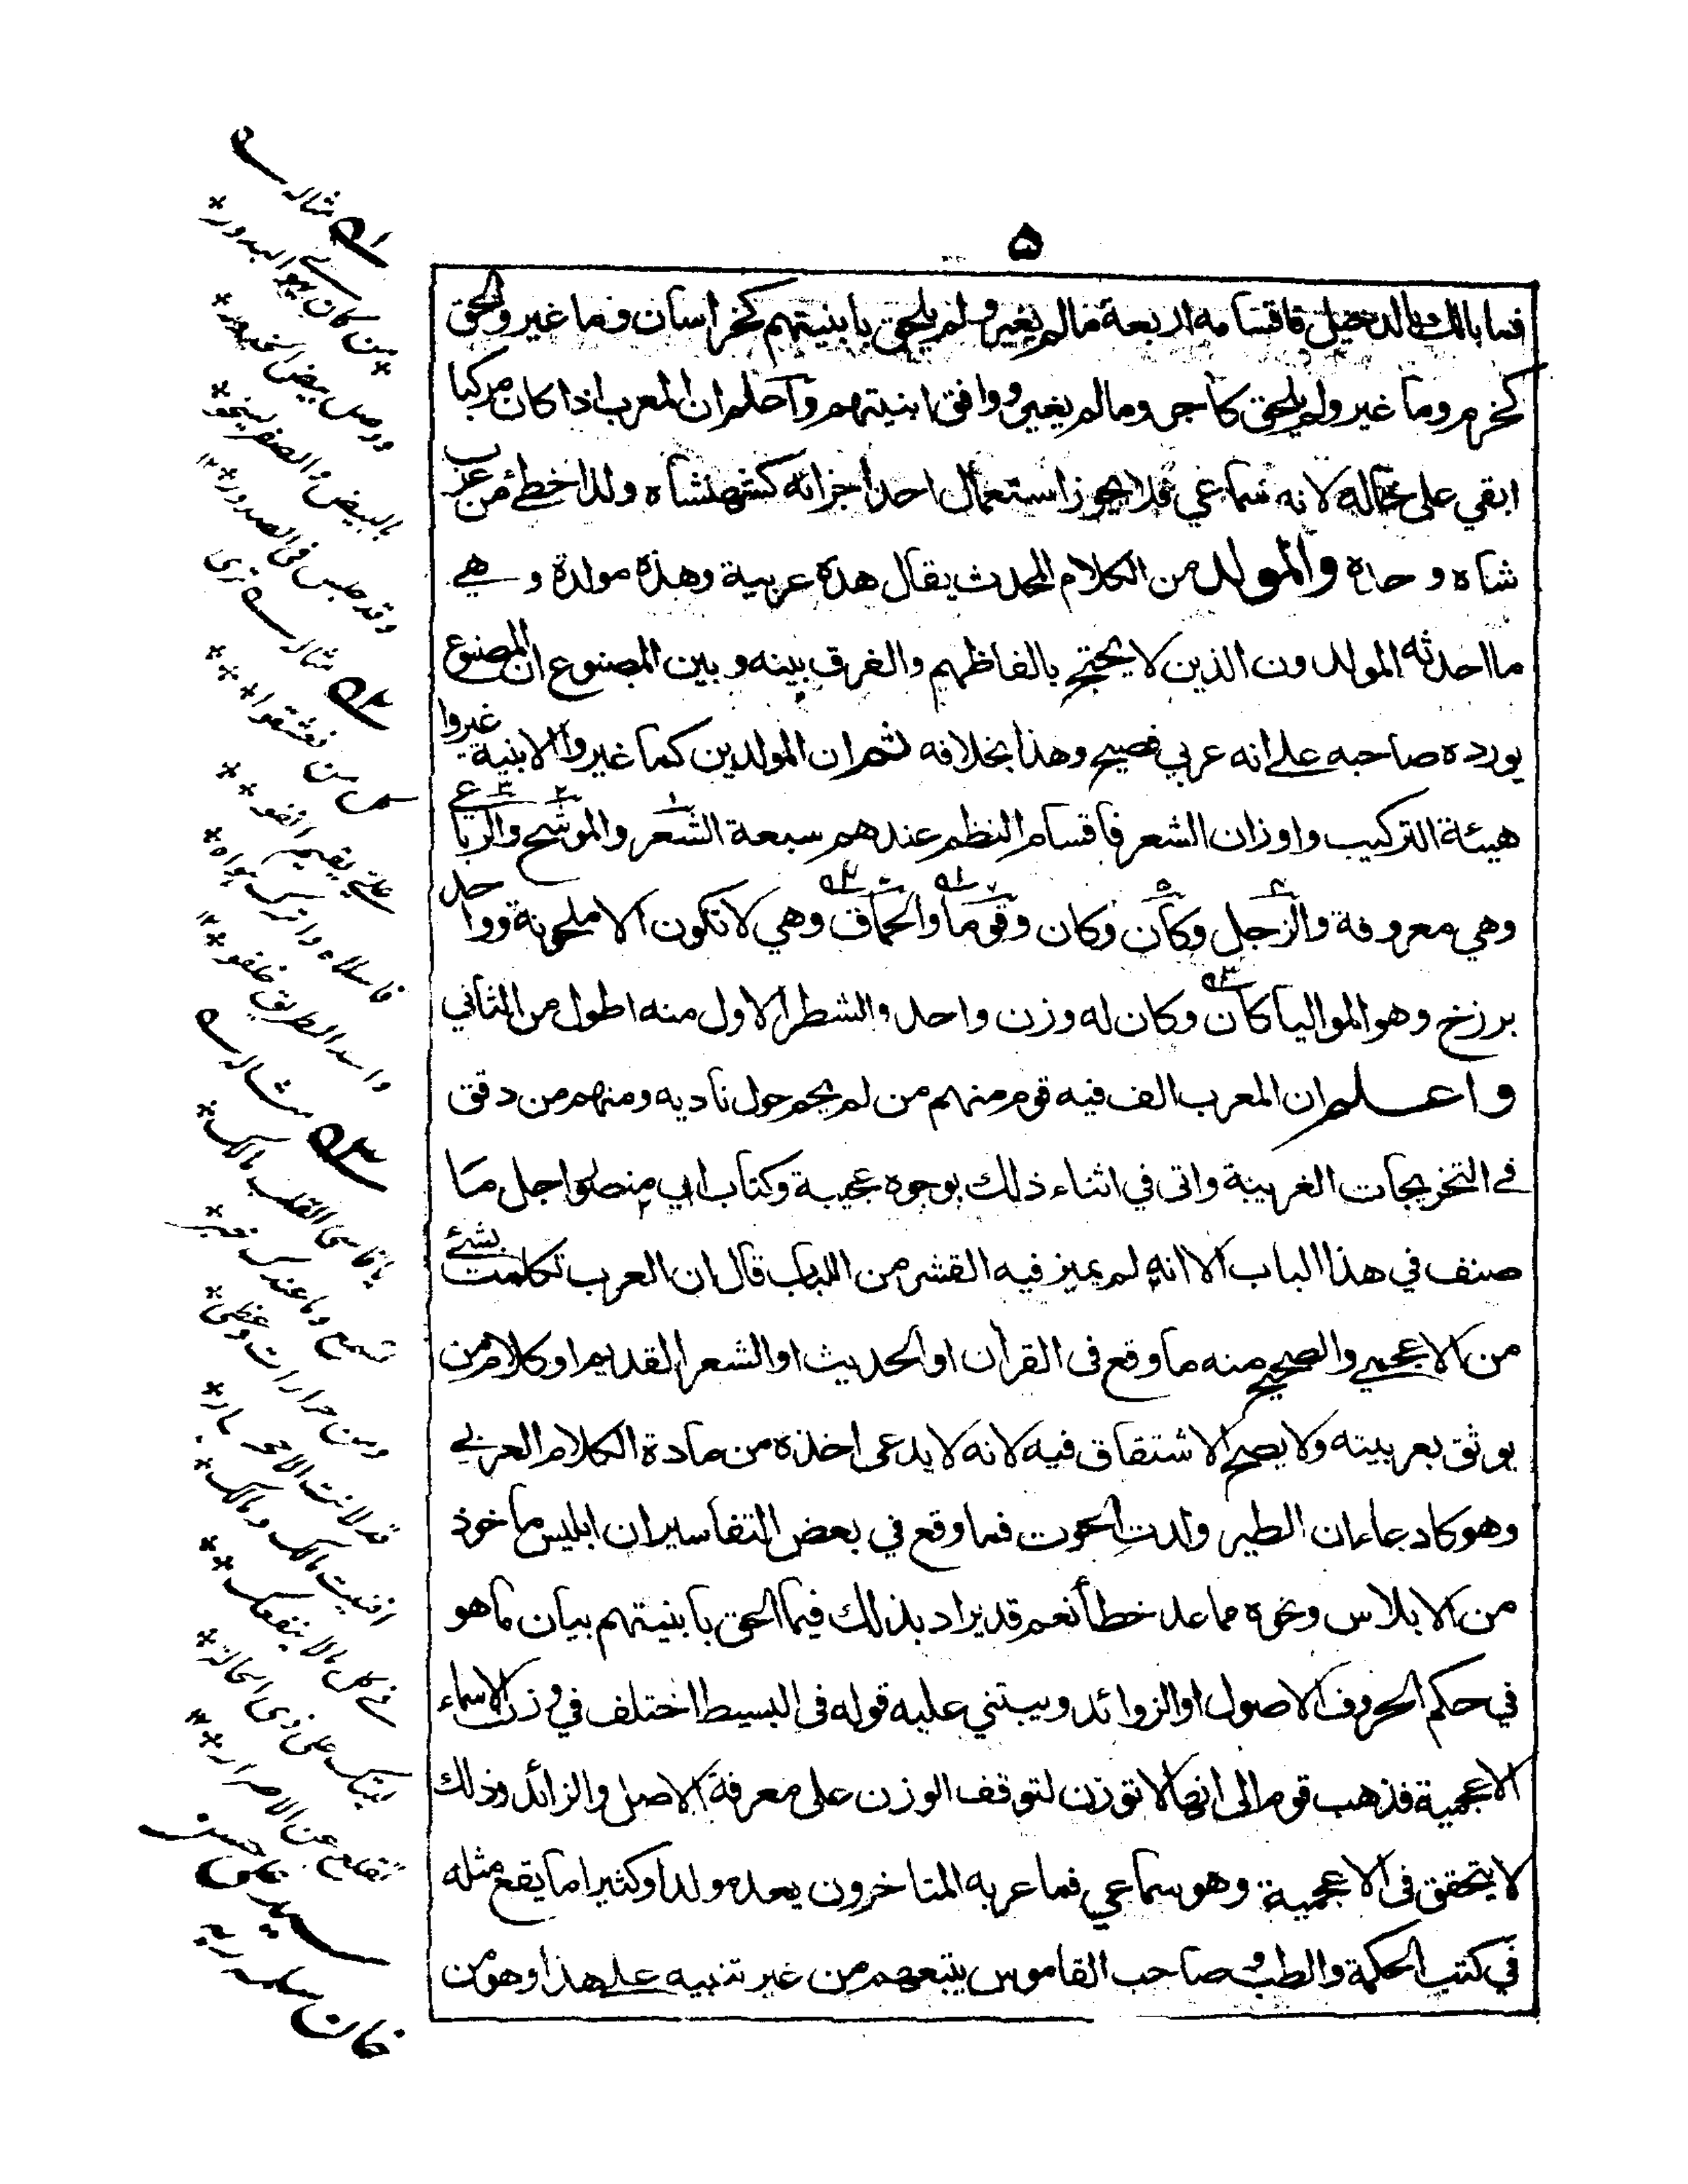 ۵
فما بالك بالدخيل فاقسامه اربعة مالم يغير ولم يلحق بابنيتهم كخراسان وما غير والحق
كخرم وما غير ولم يلحق كاجر وما لم يغير ووافق ابنيتهم واعلم ان المعرب اذا كان مركبا
ابقي على حاله لانه سماعي فلا يجوز استعمال احد اجزائه كشهنشاه ولذا خطئ من عرب
شاه وحده والمولد من الكلام المحدث يقال هذه عربية وهذه مولدة وهي
ما احدثه المولدون الذين لا يحتج بالفاظهم والفرق بينه وبين المصنوع ان المصنوع
يورده صاحبه على انه عربي فصيح وهذا بخلافه ثم ان المولدين كما غيروا الابنية غيروا
هيئة التركيب واوزان الشعر فاقسام النظم عندهم سبعة الشعر والموشح والرباعي
وهي معروفة والزجل وكان وكان وقوما والحماق وهي لا تكون الا ملحونة وواحد
برزخ وهو المواليا كان وكان له وزن واحد والشطر الاول منه اطول من الثاني
واعلم ان المعرب الف فيه قوم منهم من لم يحم حول ناديه ومنهم من دقق
في التخريجات الغريبة واتى في اثناء ذلك بوجوه عجيبة وكتاب ابي منصور اجل ما
صنف في هذا الباب الا انه لم يميز فيه القشر من اللباب قال ان العرب تكلمت بشئ
من الاعجمي والصحيح منه ما وقع فى القرآن او الحديث او الشعر القديم او كلام من
يوثق بعربيته ولا يصح الاشتقاق فيه لانه لا يدعى اخذه من مادة الكلام العربي
وهو كادعاء ان الطير ولدت الحوت فما وقع في بعض التفاسير ان ابليس ماخوذ
من الابلاس ونحوه مما عد خطأ نعم قد يراد بذلك فيما الحق بابنيتهم بيان ما هو
في حكم الحروف الاصول او الزوائد ويبتني عليه قوله فى البسيط اختلف في وزن الاسماء
الاعجمية فذهب قوم الى انها لا توزن لتوقف الوزن على معرفة الاصل والزائد وذلك
لا يتحقق فى الاعجمية وهو سماعي فما عربه المتاخرون يعد مولدا وكثيرا ما يقع مثله
في كتب الحكمة والطب وصاحب القاموس يتبعهم من غير تنبيه على هذا وهو من
وقد جلس فى الصدور
واسد الطريق خلفو
يا قاسى القلب مالك
تسمع وما عندك خبر
ومن حرارات وعظى
قد لانت الاحجار
افنيت مالك ومالك
فى كل ما لا ينفعك
ليتك على ذى الحالة
تقلع عن الاصرار
سيد على حسن
خان